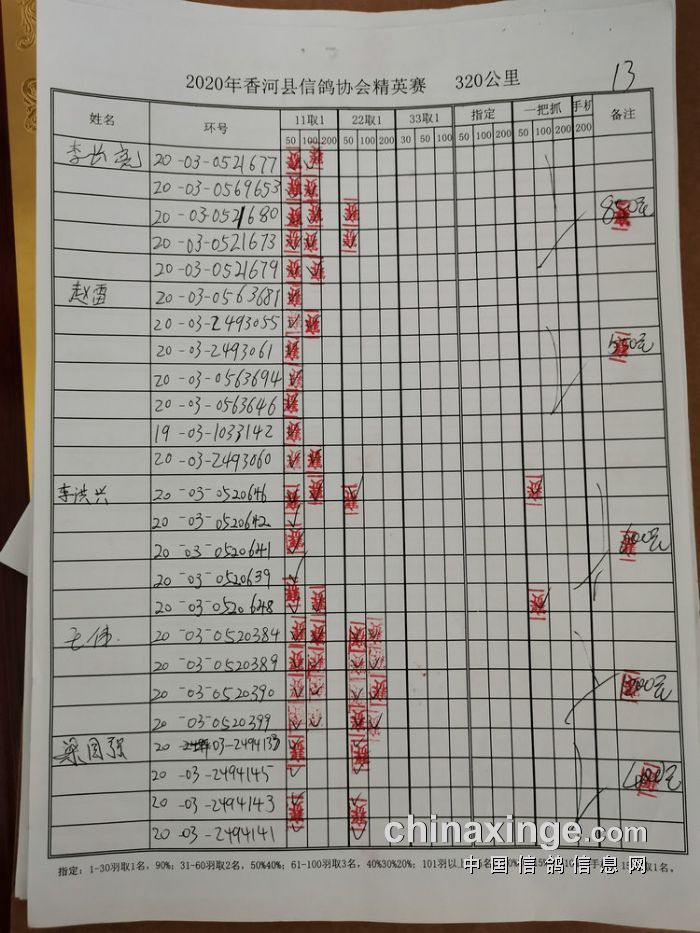 2020年香河县信鸽协会精英赛 320公里 13
姓名 环号 11取1 22取1 33取1 指定 一把抓 手机 备注
50 100 200 50 100 200 30 50 100 50 100 200 50 100 200 200
李长亮 20-03-0521677
20-03-0569653
20-03-0521680 850元
20-03-0521673
20-03-0521679
赵雷 20-03-0563681
20-03-2493055
20-03-2493061
20-03-0563694
20-03-0563646
19-03-1033142
20-03-2493060
李洪兴 20-03-0520646
20-03-0520642
20-03-0520641
20-03-0520639
20-03-0520648
王伟 20-03-0520384
20-03-0520389
20-03-0520390
20-03-0520399
梁国强 20 03-2494137
20-03-2494145
20-03-2494143 400元
20-03-2494141
指定：1-30羽取1名，90%；31-60羽取2名，50%40%；61-100羽取3名，40%30%20%；101羽以上 取1名。
chinaxinge.com
中国信鸽信息网